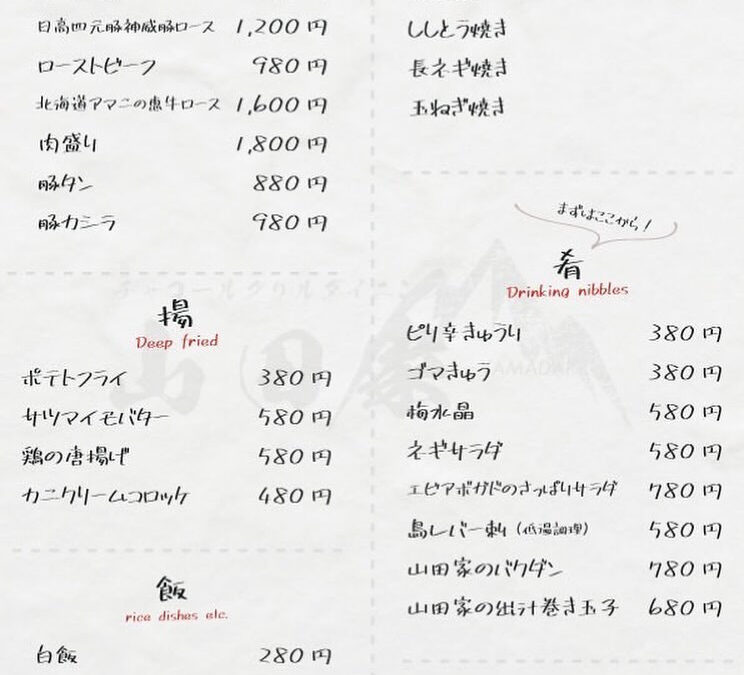 日高四元豚神威豚ロース 1,200円
ローストビーフ 980円
北海道アマニの恵牛ロース 1,600円
肉盛り 1,800円
豚タン 880円
豚カシラ 980円
揚
Deep fried
ポテトフライ 380円
サツマイモバター 580円
鶏の唐揚げ 580円
カニクリームコロッケ 480円
飯
rice dishes etc.
白飯 280円
ししとう焼き
長ネギ焼き
玉ねぎ焼き
まずはここから!
肴
Drinking nibbles
ピリ辛きゅうり 380円
ゴマきゅう 380円
梅水晶 580円
ネギサラダ 580円
エビアボガドのさっぱりサラダ 780円
鳥レバー刺(低温調理) 580円
山田家のバクダン 780円
山田家の出汁巻き玉子 680円
チャコールグリルダイニング
山田家